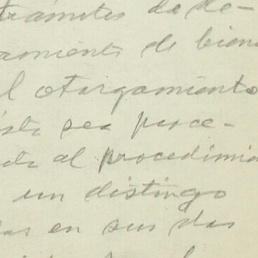 trámites de de-
amiento de biene
l otorgamiento
ésta sea proce-
al procedimie
un distingo
en sus dos